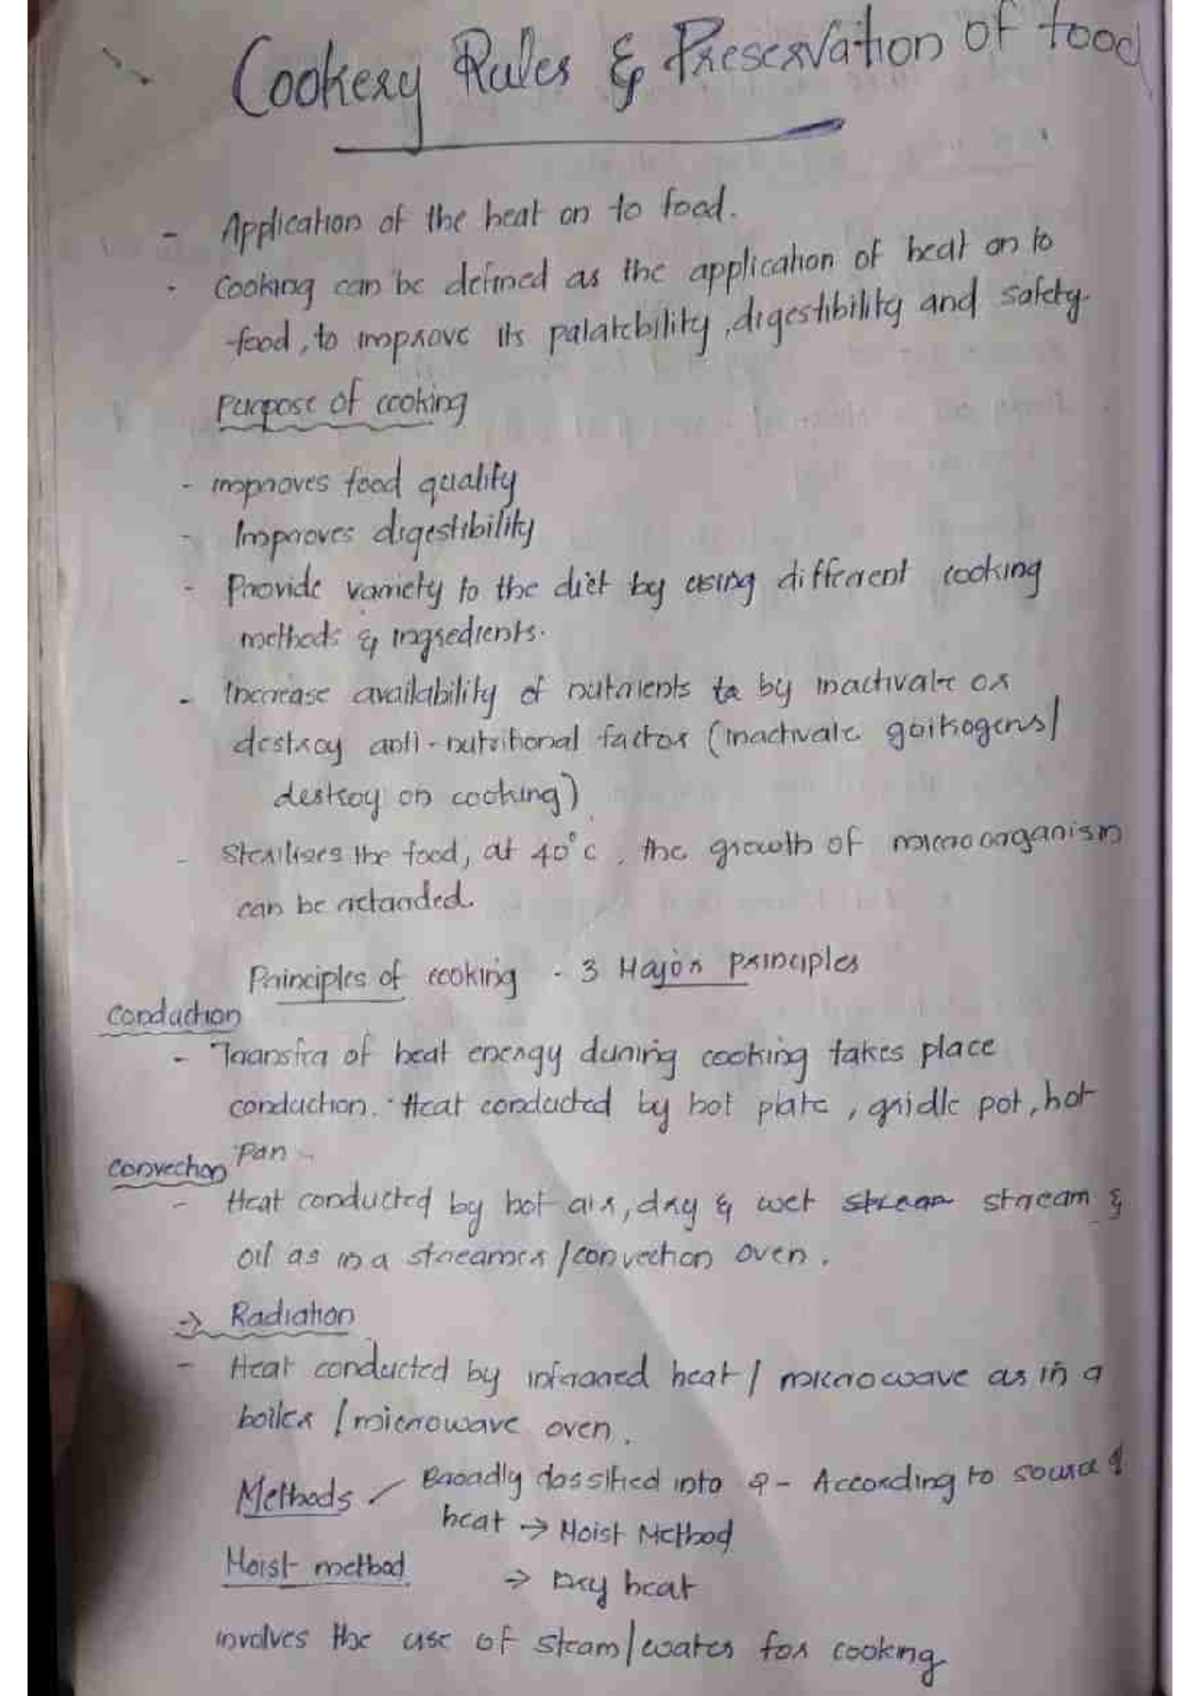 Cookery Rules & Preservation of food
- Application of the heat on to food.
- Cooking can be defined as the application of heat on to
food, to improve its palatebility, digestibility and safety.
Purpose of cooking
- improves food quality
- Improves digestibility
- Provide variety to the diet by using different cooking
methods & ingredients.
- Increase availability of nutrients ta by inactivate or
destroy anti-nutritional factor (inactivate goitrogens/
destroy on cooking)
- Sterilises the food, at 40°c, the growth of microorganism
can be retarded.
Principles of cooking - 3 Major principles
Conduction
- Transfra of heat energy during cooking takes place
conduction. Heat conducted by hot plate, gridle pot, hot
Pan
Convection
- Heat conducted by hot air, dry & wet stream &
oil as in a streamer/convection oven.
-> Radiation
- Heat conducted by infrared heat / microwave as in a
boiler / microwave oven.
Methods Broadly classified into 2 - According to source of
heat → Moist Method
Moist method → Dry heat
involves the use of steam/water for cooking